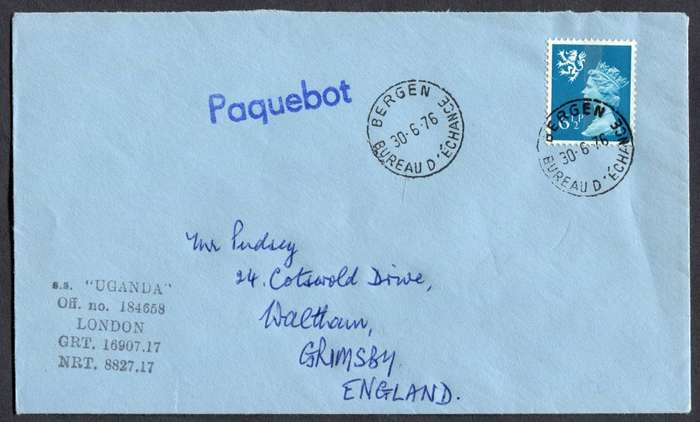 Paquebot
BERGEN
30-6-76
BUREAU D'ÉCHANGE
6½P
BERGEN
30-6-76
BUREAU D'ÉCHANGE
Mr Pudsey
24. Cotswold Drive,
Waltham,
GRIMSBY.
ENGLAND.
s.s. "UGANDA"
Off. no. 184658
LONDON
GRT. 16907.17
NRT. 8827.17